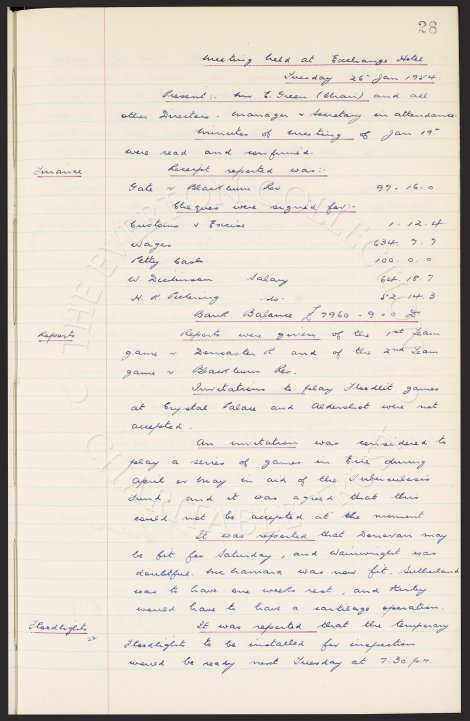 28
Meeting held at Exchange Hotel
Tuesday 26th Jan 1954.
Present:- Mr E. Green (Chair) and all
other Directors. Manager & Secretary in attendance.
Minutes of meeting of Jan 19th
were read and confirmed.
Finance Receipt reported was:-
Gate v Blackburn Res 97. 16. 0
Cheques were signed for:-
Customs & Excise 1. 12. 4
Wages 634. 7. 7
Petty Cash 100. 0. 0
W. Dickinson Salary 64. 18. 7
H. R. Pickering -do- 52. 14. 3
Bank Balance £7960 - 9 - 0 Dr
Reports Reports were given of the 1st Team
game v Doncaster R and of the 2nd Team
game v Blackburn Res.
Invitations to play Floodlit games
at Crystal Palace and Aldershot were not
accepted.
An invitation was considered to
play a series of games in Eire during
April or May in aid of the Tuberculosis
Fund, and it was agreed that this
could not be accepted at the moment.
It was reported that Donovan may
be fit for Saturday, and Wainwright was
doubtful. McNamara was now fit, Sutherland
was to have one weeks rest, and Kirby
would have to have a cartilage operation.
Floodlights It was reported that the temporary
Floodlights to be installed for inspection
would be ready next Tuesday at 7.30 p.m.
THE EVERTON COLLECTION
CHARITABLE TRUST